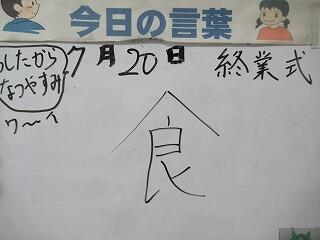 今日の言葉
7月20日 終業式
したから
なつやすみ
ワ～イ
食